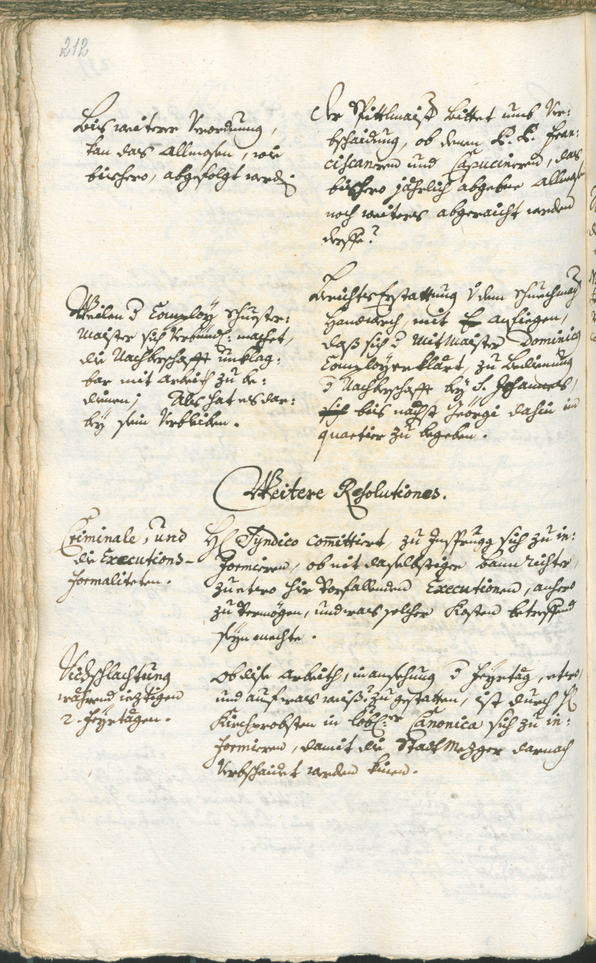 212
Bis weitere Verordnung,
kan das Allmosen, wie
bishero, abgefolgt werden.
Der Spittlmaister bittet umb Ver:
bschaidung, ob denen P. P. Fran:
ciscanern und Capucinern, das
bishero jährlich abgebne Allmosen
noch weiters abgeraicht werden
derffe?
Weilen d Comploÿ Schuster:
Maister sich verbündl: machet,
die Nachberschafft unklag:
bar mit Arbeith zu be:
dienen; Als hat es dar:
beÿ sein Verbleiben.
Berichts Erstattung v dem Schuechmach
Handwerch, mit anfiegen,
daß sich d MitMaister Dominicus
Comploÿ erklärt, zu Bedienung
d Nachberschafft beÿ S. Johannes,
bis negst Georgi dahin ins
quartier zu begeben.
Weitere Resolutiones.
Criminale, und
die Executions-
formaliteten.
H. Syndico com̄ittiert, zu Insprugg sich zu in:
formieren, ob nit daselbstiger bannrichter,
zu etwo hie vorfallenden Executionen, anhero
zu vermögen, und was solcher Kosten betreffend
seÿn mechte.
Viechschlachtung
während ieztigen
2. Feÿrtägen.
Ob dise Arbeith, in ansehung d Feÿrtäg, etwo,
und auf was weiß, zu gestatten, ist durch H
Kirchprobsten in löbl:er Canonica sich zu in:
formieren, damit die Stadt Mezger darnach
verbschaidet werden kinen.